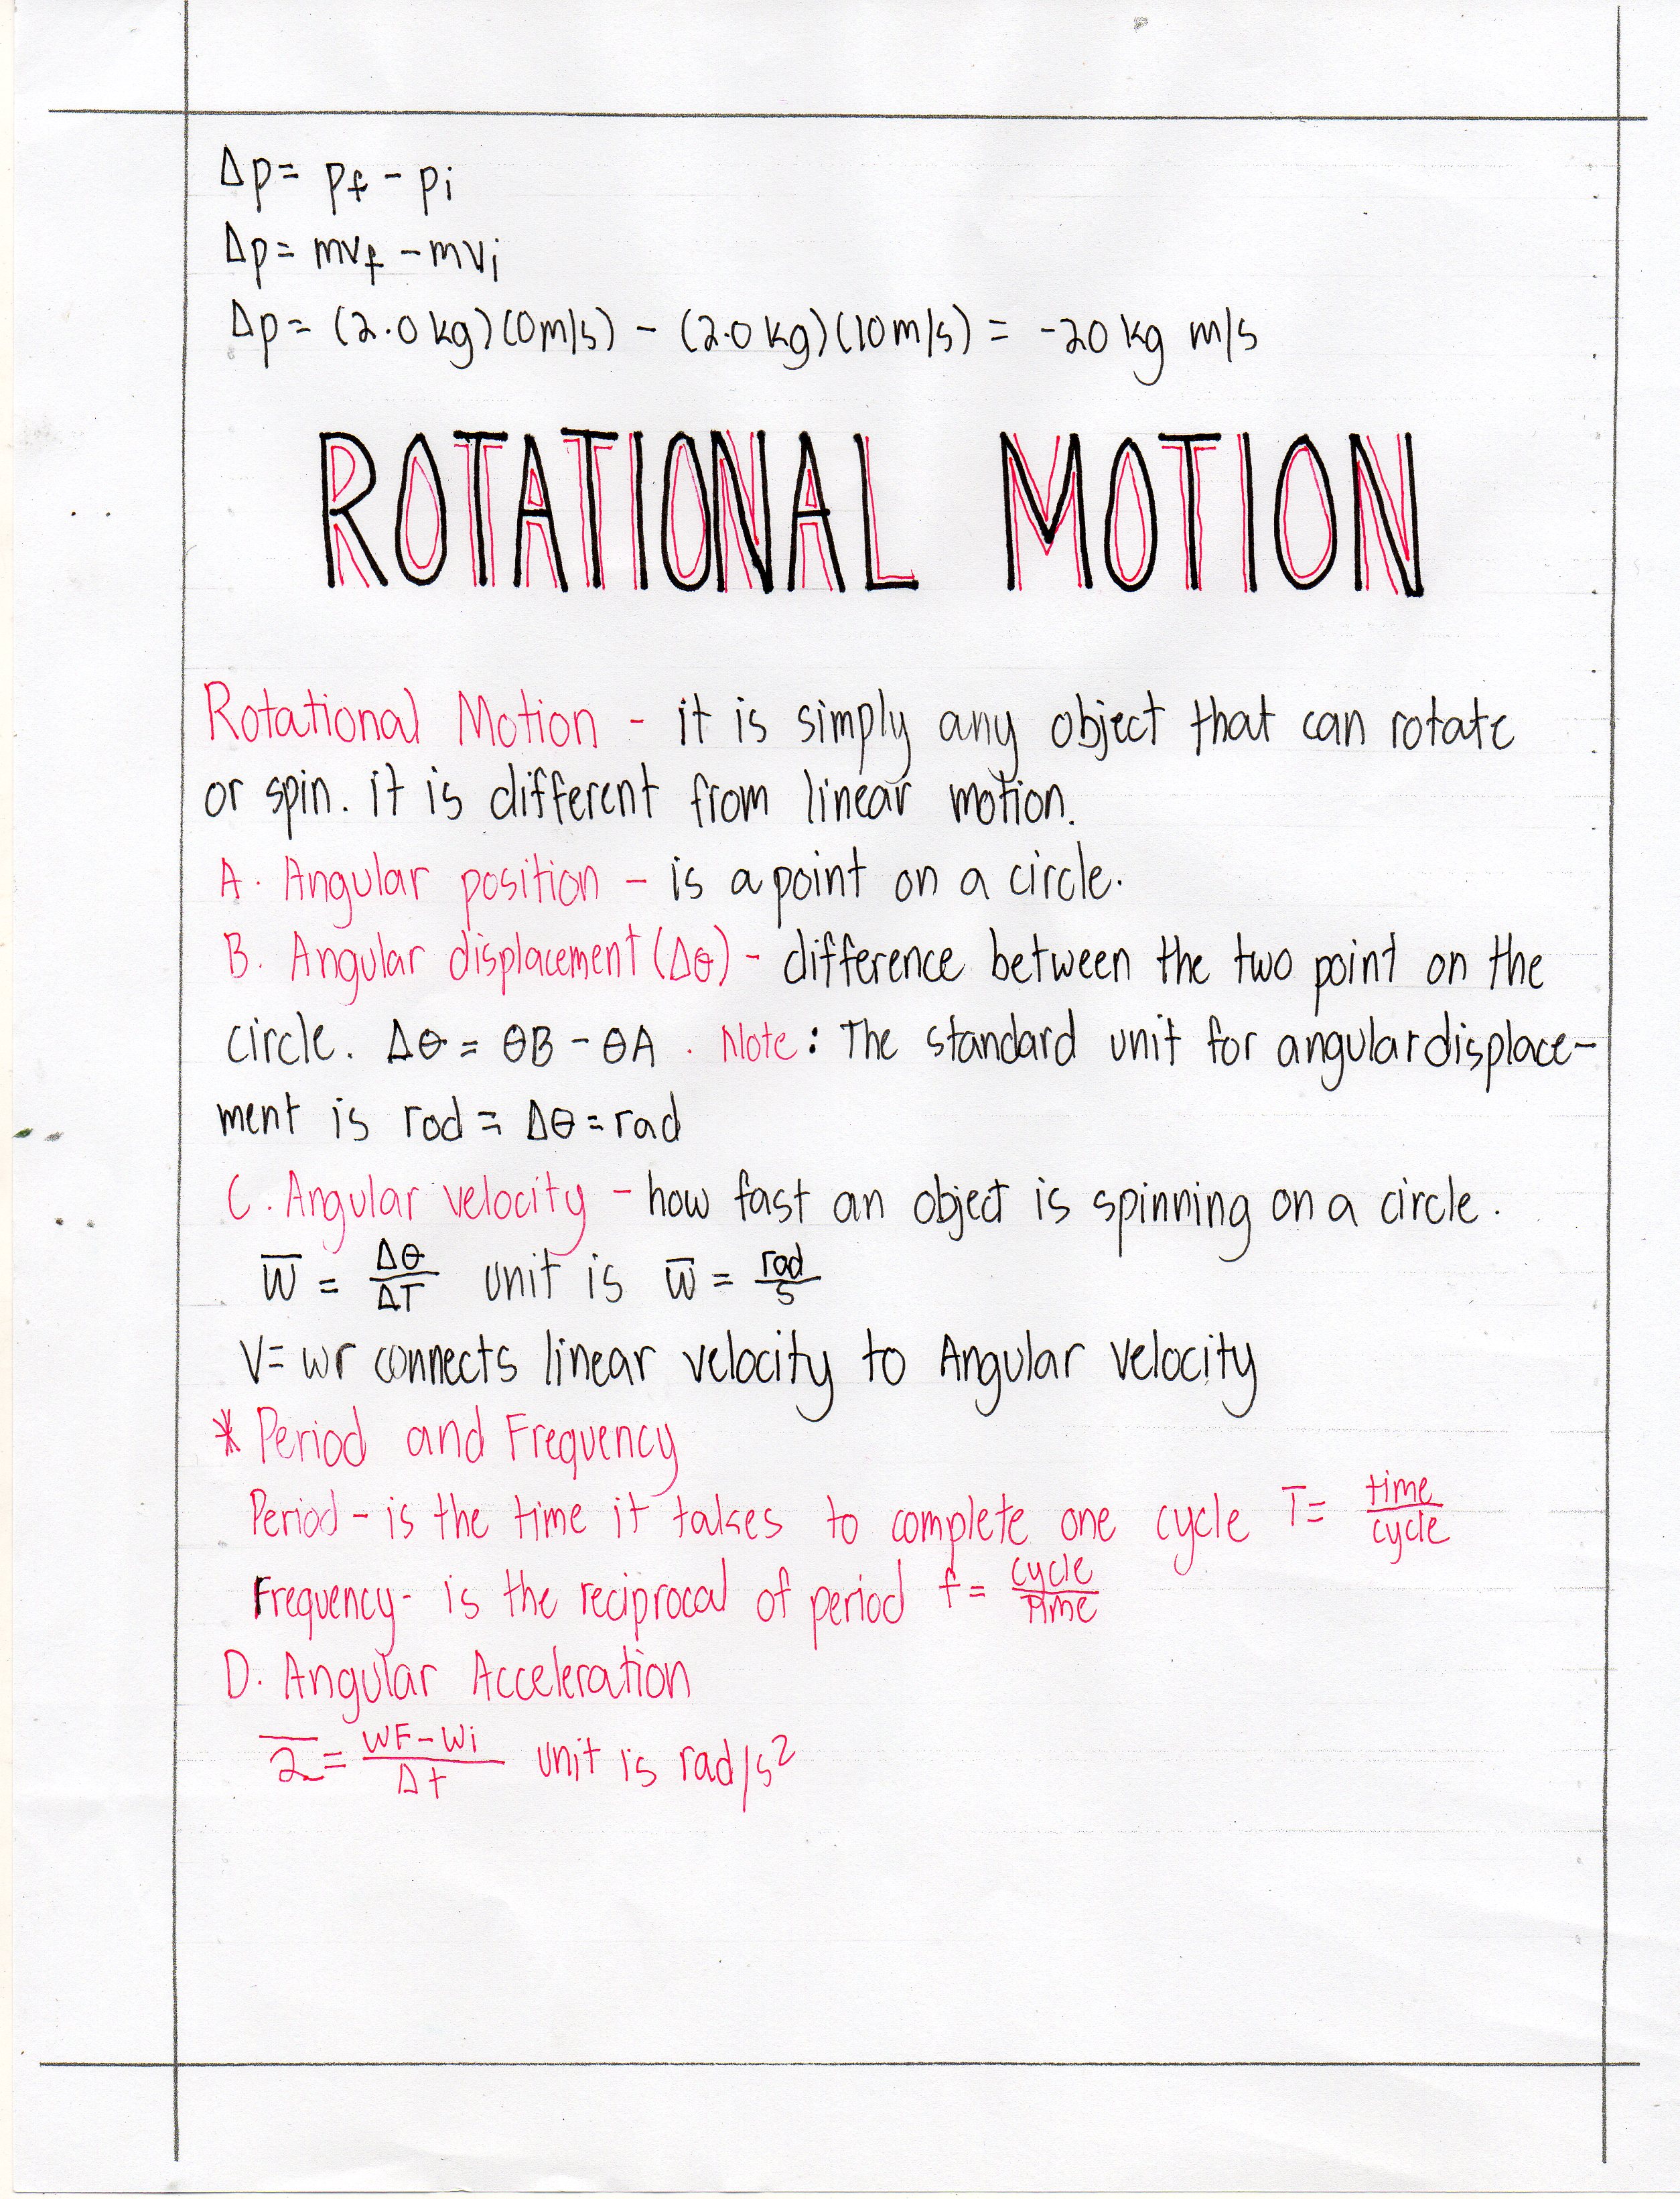 Δp = pf - pi
Δp = mvf - mvi
Δp = (2.0 kg)(0m/s) - (2.0 kg)(10m/s) = -20 kg m/s
ROTATIONAL MOTION
Rotational Motion - it is simply any object that can rotate
or spin. it is different from linear motion.
A. Angular position - is a point on a circle.
B. Angular displacement (Δθ) - difference between the two point on the
circle. Δθ = θB - θA . Note: The standard unit for angular displace-
ment is rod = Δθ = rad
C. Angular velocity - how fast an object is spinning on a circle.
w̅ = Δθ/ΔT unit is w̅ = rad/s
V = wr connects linear velocity to Angular velocity
* Period and Frequency
Period - is the time it takes to complete one cycle T = time/cycle
Frequency - is the reciprocal of period f = cycle/time
D. Angular Acceleration
2̅ = wF - wi/Δt unit is rad/s²